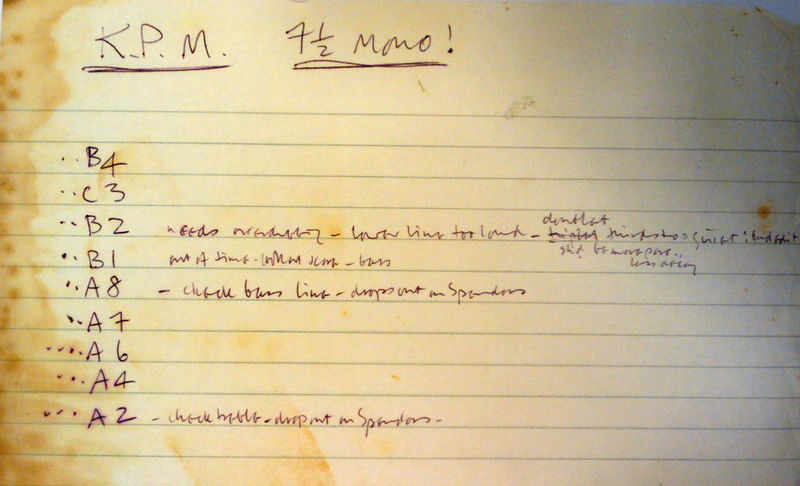 K.P.M. 7½ mono!
·· B4
·· C3
·· B2 needs overdubbing - lower line too loud - thirds too quiet: bad edit
·· B1 out of time - look at score - bass
shd be more
less decay
·· A8 - check bass line - drops out on Spendors
·· A7
···· A6
··· A4
···· A2 - check treble - drop out on Spendors -